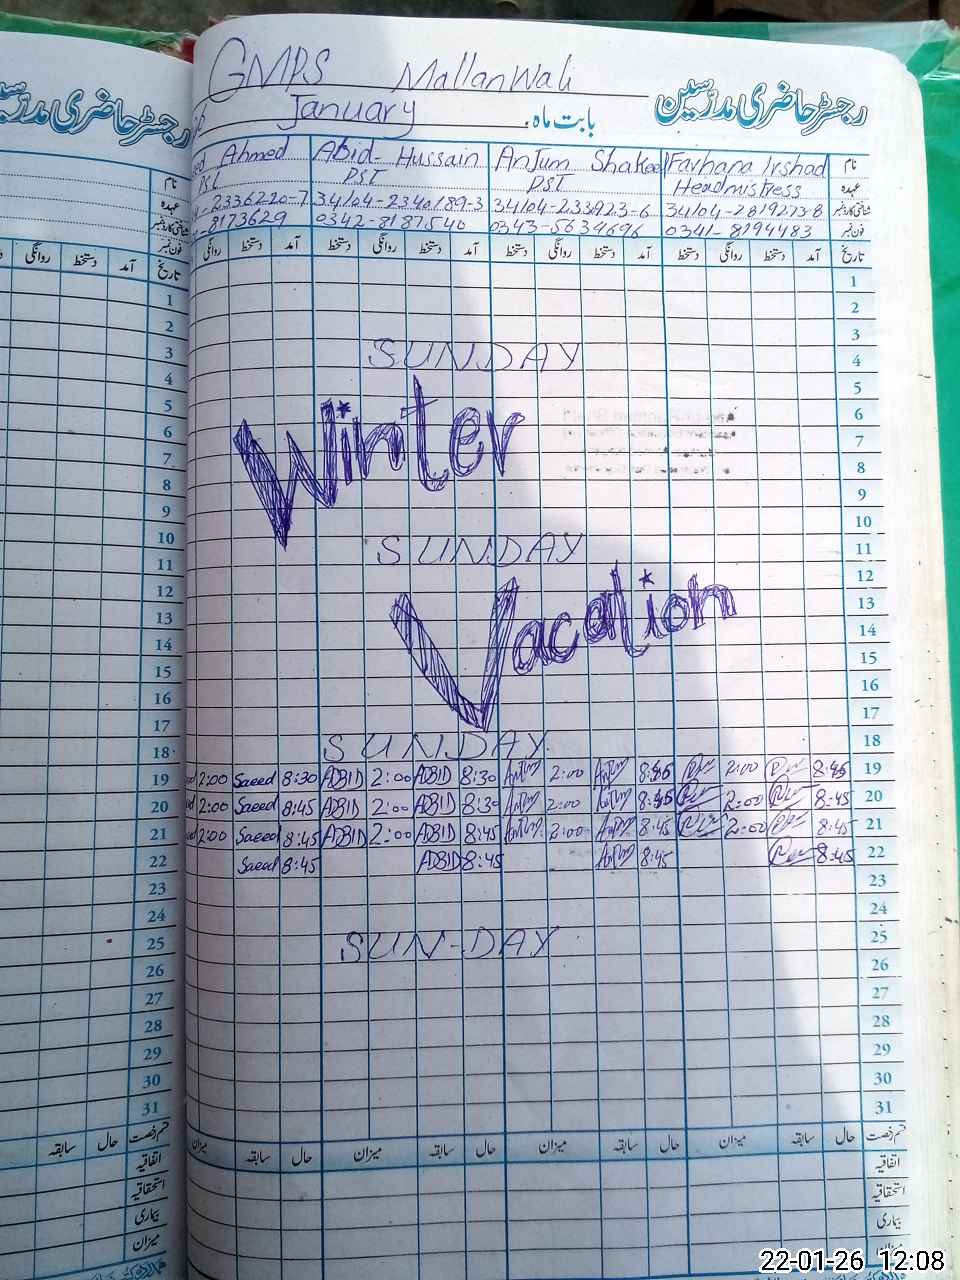 GMPS MallanWali
رجسٹر حاضری مدرسین
January
بابت ماہ
Ahmed Abid- Hussain Anjum Shakeel Farhana Irshad نام
PST PST Headmistress عہدہ
2336220-7 34104-2340189-3 34104-233923-6 34104-2819273-8 شناختی کارڈ نمبر
8173629 0342-8187540 0343-5634696 0341-8194483 فون نمبر
روانگی دستخط آمد دستخط روانگی دستخط آمد دستخط روانگی دستخط آمد دستخط روانگی دستخط آمد تاریخ
1
2
3
SUNDAY 4
5
Winter
6
7
8
9
10
SUNDAY 11
12
Vacation
13
14
15
16
17
SUNDAY 18
2:00 Saeed 8:30 ABID 2:00 ABID 8:30 Anjum 2:00 Anjum 8:45 2:00 8:45 19
2:00 Saeed 8:45 ABID 2:00 ABID 8:30 Anjum 2:00 Anjum 8:45 2:00 8:45 20
2:00 Saeed 8:45 ABID 2:00 ABID 8:45 Anjum 2:00 Anjum 8:45 2:00 8:45 21
Saeed 8:45 ABID 8:45 Anjum 8:45 8:45 22
23
24
SUN-DAY 25
26
27
28
29
30
31
میزان سابقہ حال میزان سابقہ حال میزان سابقہ حال میزان سابقہ حال قسم رخصت
اتفاقیہ
استحقاقیہ
بیماری
میزان
رجسٹر حاضری مدرسین
نام
عہدہ
شناختی کارڈ نمبر
فون نمبر
روانگی دستخط آمد تاریخ
1
2
3
4
5
6
7
8
9
10
11
12
13
14
15
16
17
18
19
20
21
22
23
24
25
26
27
28
29
30
31
سابقہ حال قسم رخصت
اتفاقیہ
استحقاقیہ
بیماری
میزان
22-01-26 12:08